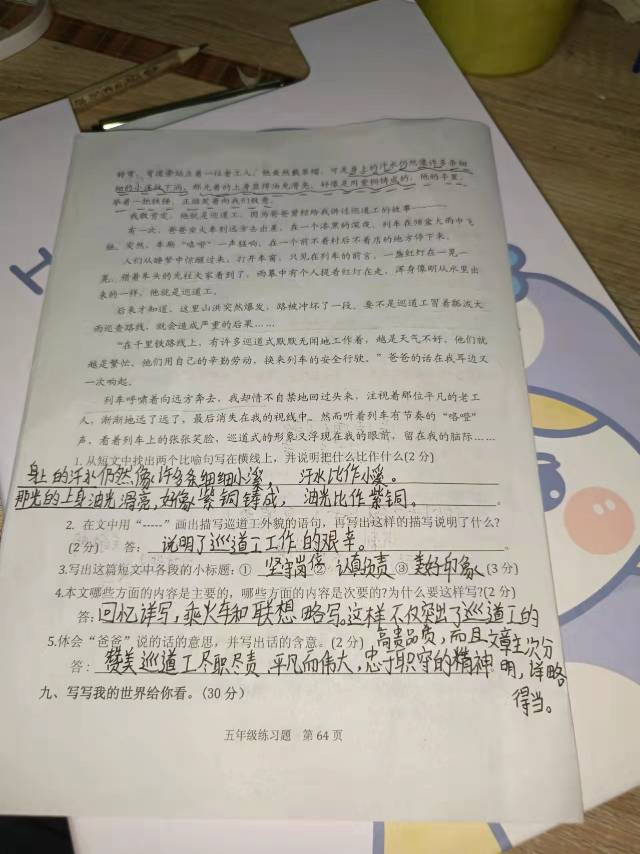 转弯，弯道旁站立着一位老工人。他虽然戴草帽，可是身上的汗水仍然像许多条细
细的小溪往下淌。那光着的上身显得油光滑亮，好像是用紫铜铸成的，他的手里，
举着一把铁锤，正微笑着向我们致意。
我敢肯定，他就是巡道工，因为爸爸曾经给我讲过巡道工的故事——
有一次，爸爸坐火车到远方去出差，在一个漆黑的深夜，列车在倾盆大雨中飞
驰。突然，车厢“咯噔”一声猛响，在一个前不着村后不着店的地方停下来。
人们从睡梦中惊醒过来，打开车窗，只见在列车的前方，一盏红灯在一晃一
晃。借着车头的光柱大家看到了，雨幕中有个人提着红灯在走，浑身像刚从水里出
来的一样。他就是巡道工。
后来才知道，这里山洪突然爆发，路被冲坏了一段。要不是巡道工冒着瓢泼大
雨巡查路线，就会造成严重的后果……
“在千里铁路线上，有许多巡道式默默无闻地工作着，越是天气不好，他们就
越是繁忙。他们用自己的辛勤劳动，换来列车的安全行驶。”爸爸的话在我耳边又
一次响起。
列车呼啸着向远方奔去，我却情不自禁地回过头来，注视着那位平凡的老工
人，渐渐地远了远了，最后消失在我的视线中。然而听着列车有节奏的“咯噔”
声，看着列车上的张张笑脸，巡道式的形象又浮现在我的眼前，留在我的脑际……
1.从短文中找出两个比喻句写在横线上，并说明把什么比作什么(2分)
身上的汗水仍然像许多条细细小溪， 汗水比作小溪。
那光的上身油光滑亮，好像紫铜铸成， 油光比作紫铜。
2. 在文中用“-----”画出描写巡道工外貌的语句，再写出这样的描写说明了什么?
(2分) 答：说明了巡道工工作的艰辛。
3.写出这篇短文中各段的小标题：① 坚守岗位 ② 认真负责 ③ 美好印象 (3分)
4.本文哪些方面的内容是主要的，哪些方面的内容是次要的?为什么要这样写?(2分)
答：回忆详写，乘火车和联想略写。这样不仅突出了巡道工的
高贵品质，而且文章主次分
明，详略
得当。
5.体会“爸爸”说的话的意思，并写出话的含意。(2分)
答：赞美巡道工尽职尽责、平凡而伟大，忠于职守的精神
九、写写我的世界给你看。(30分)
五年级练习题 第64页